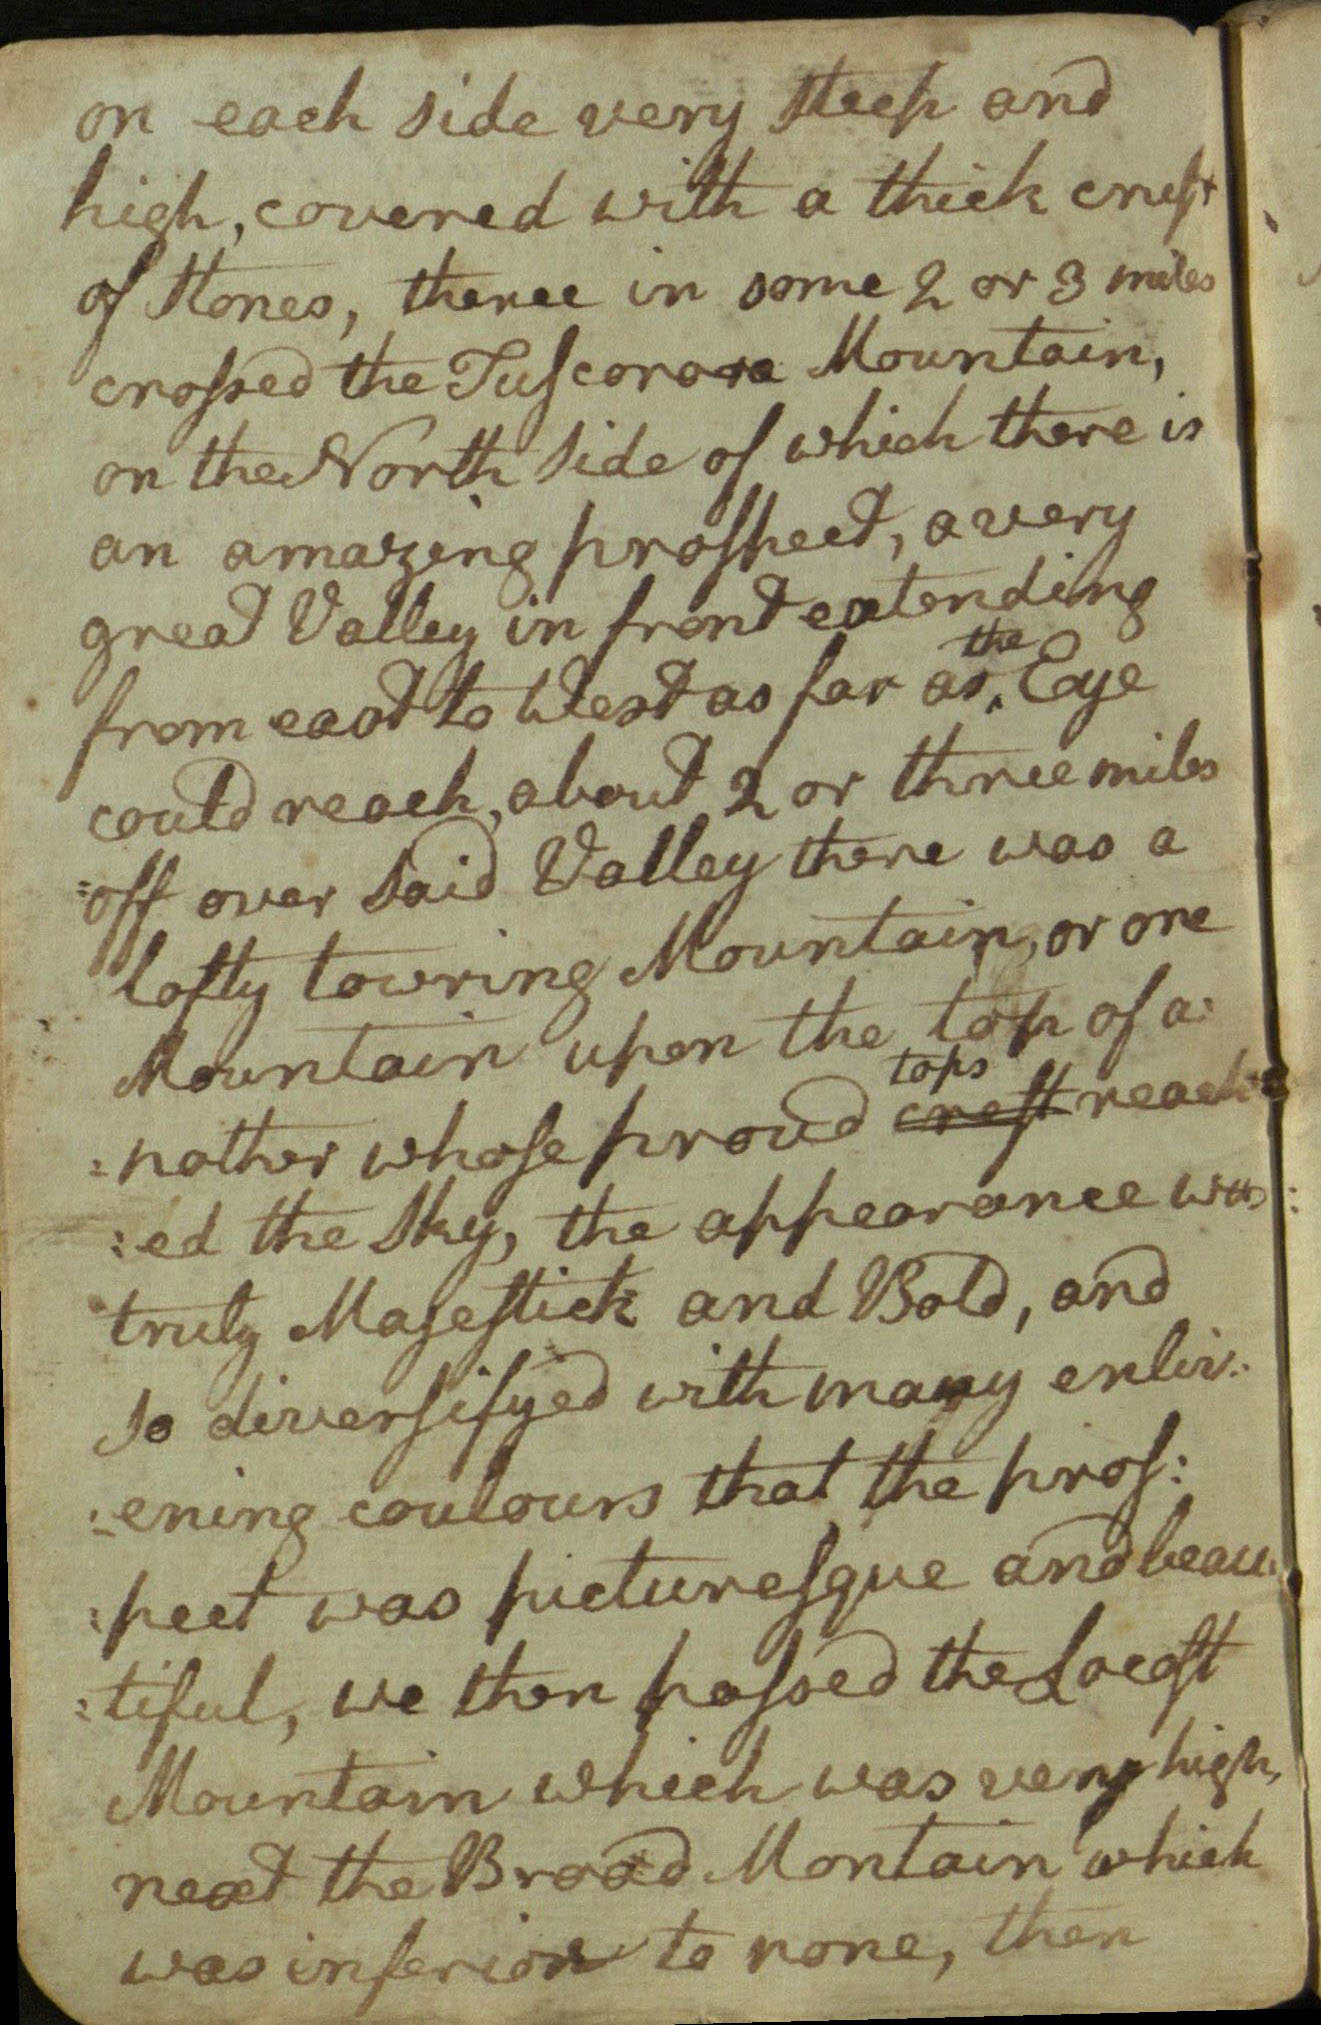 on each side very steep and
high, covered with a thick crust
of stones, thence in some 2 or 3 miles
crossed the Tuscorora Mountain,
on the North side of which there is
an amazing prospect, a very
great Valley in front extending
from east to West as far as ^the Eye
could reach, about 2 or three miles
:off over said Valley there was a
lofty towring Mountain, or one
Mountain upon the top of a:
:nother whose proud tops crest reach:
:ed the Sky, the appearance was
truly Majestick and Bold, and
so diversifyed with many enliv:
:ening coulours that the pros:
:pect was picturesque and beau:
:tiful, we then passed the Locost
Mountain which was very high,
next the Broad Montain which
was inferior to none, then